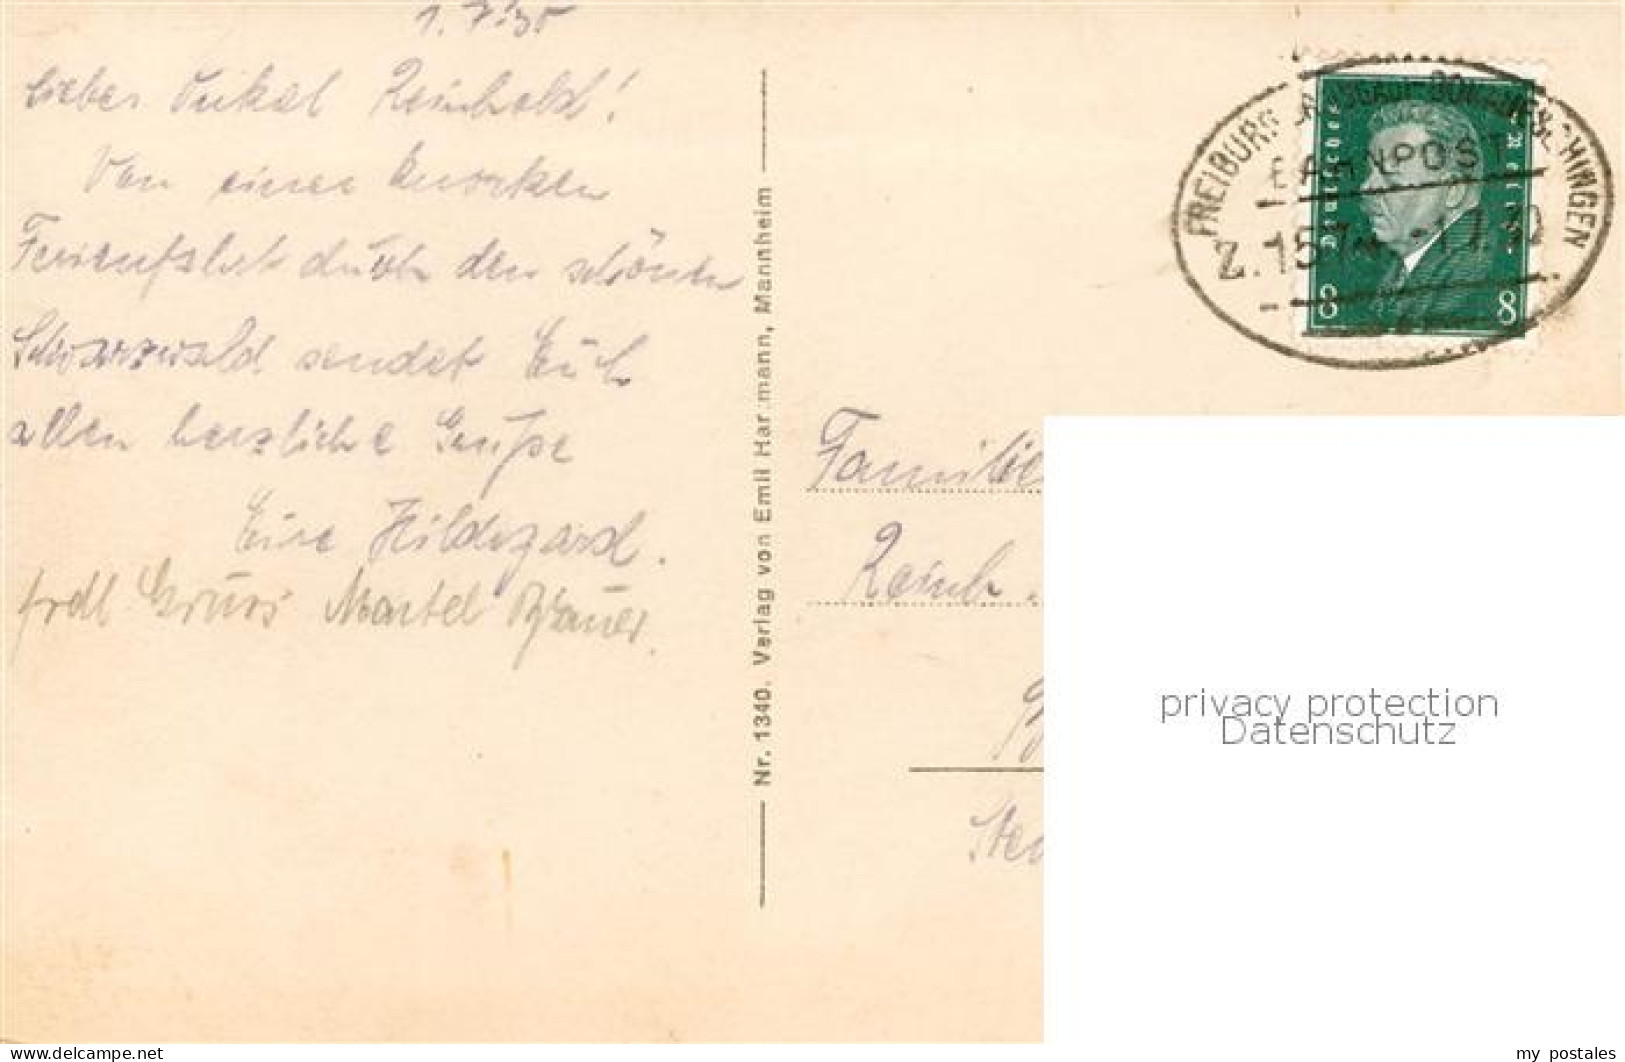 1.7.30
Lieber Onkel Reinhold!
Von einer
Ferienfahrt durch den schönen
Schwarzwald sendet Euch
allen herzliche Grüße
Eure Hildegard.
frdl Gruss
Nr. 1340. Verlag von Emil Hartmann, Mannheim
FREIBURG DONAUESCHINGEN
BAHNPOST
Z.157 -1.7.30
Deutsches Reich
8 8
Familie
Reinh.
privacy protection
Datenschutz
www.delcampe.net
my_postales